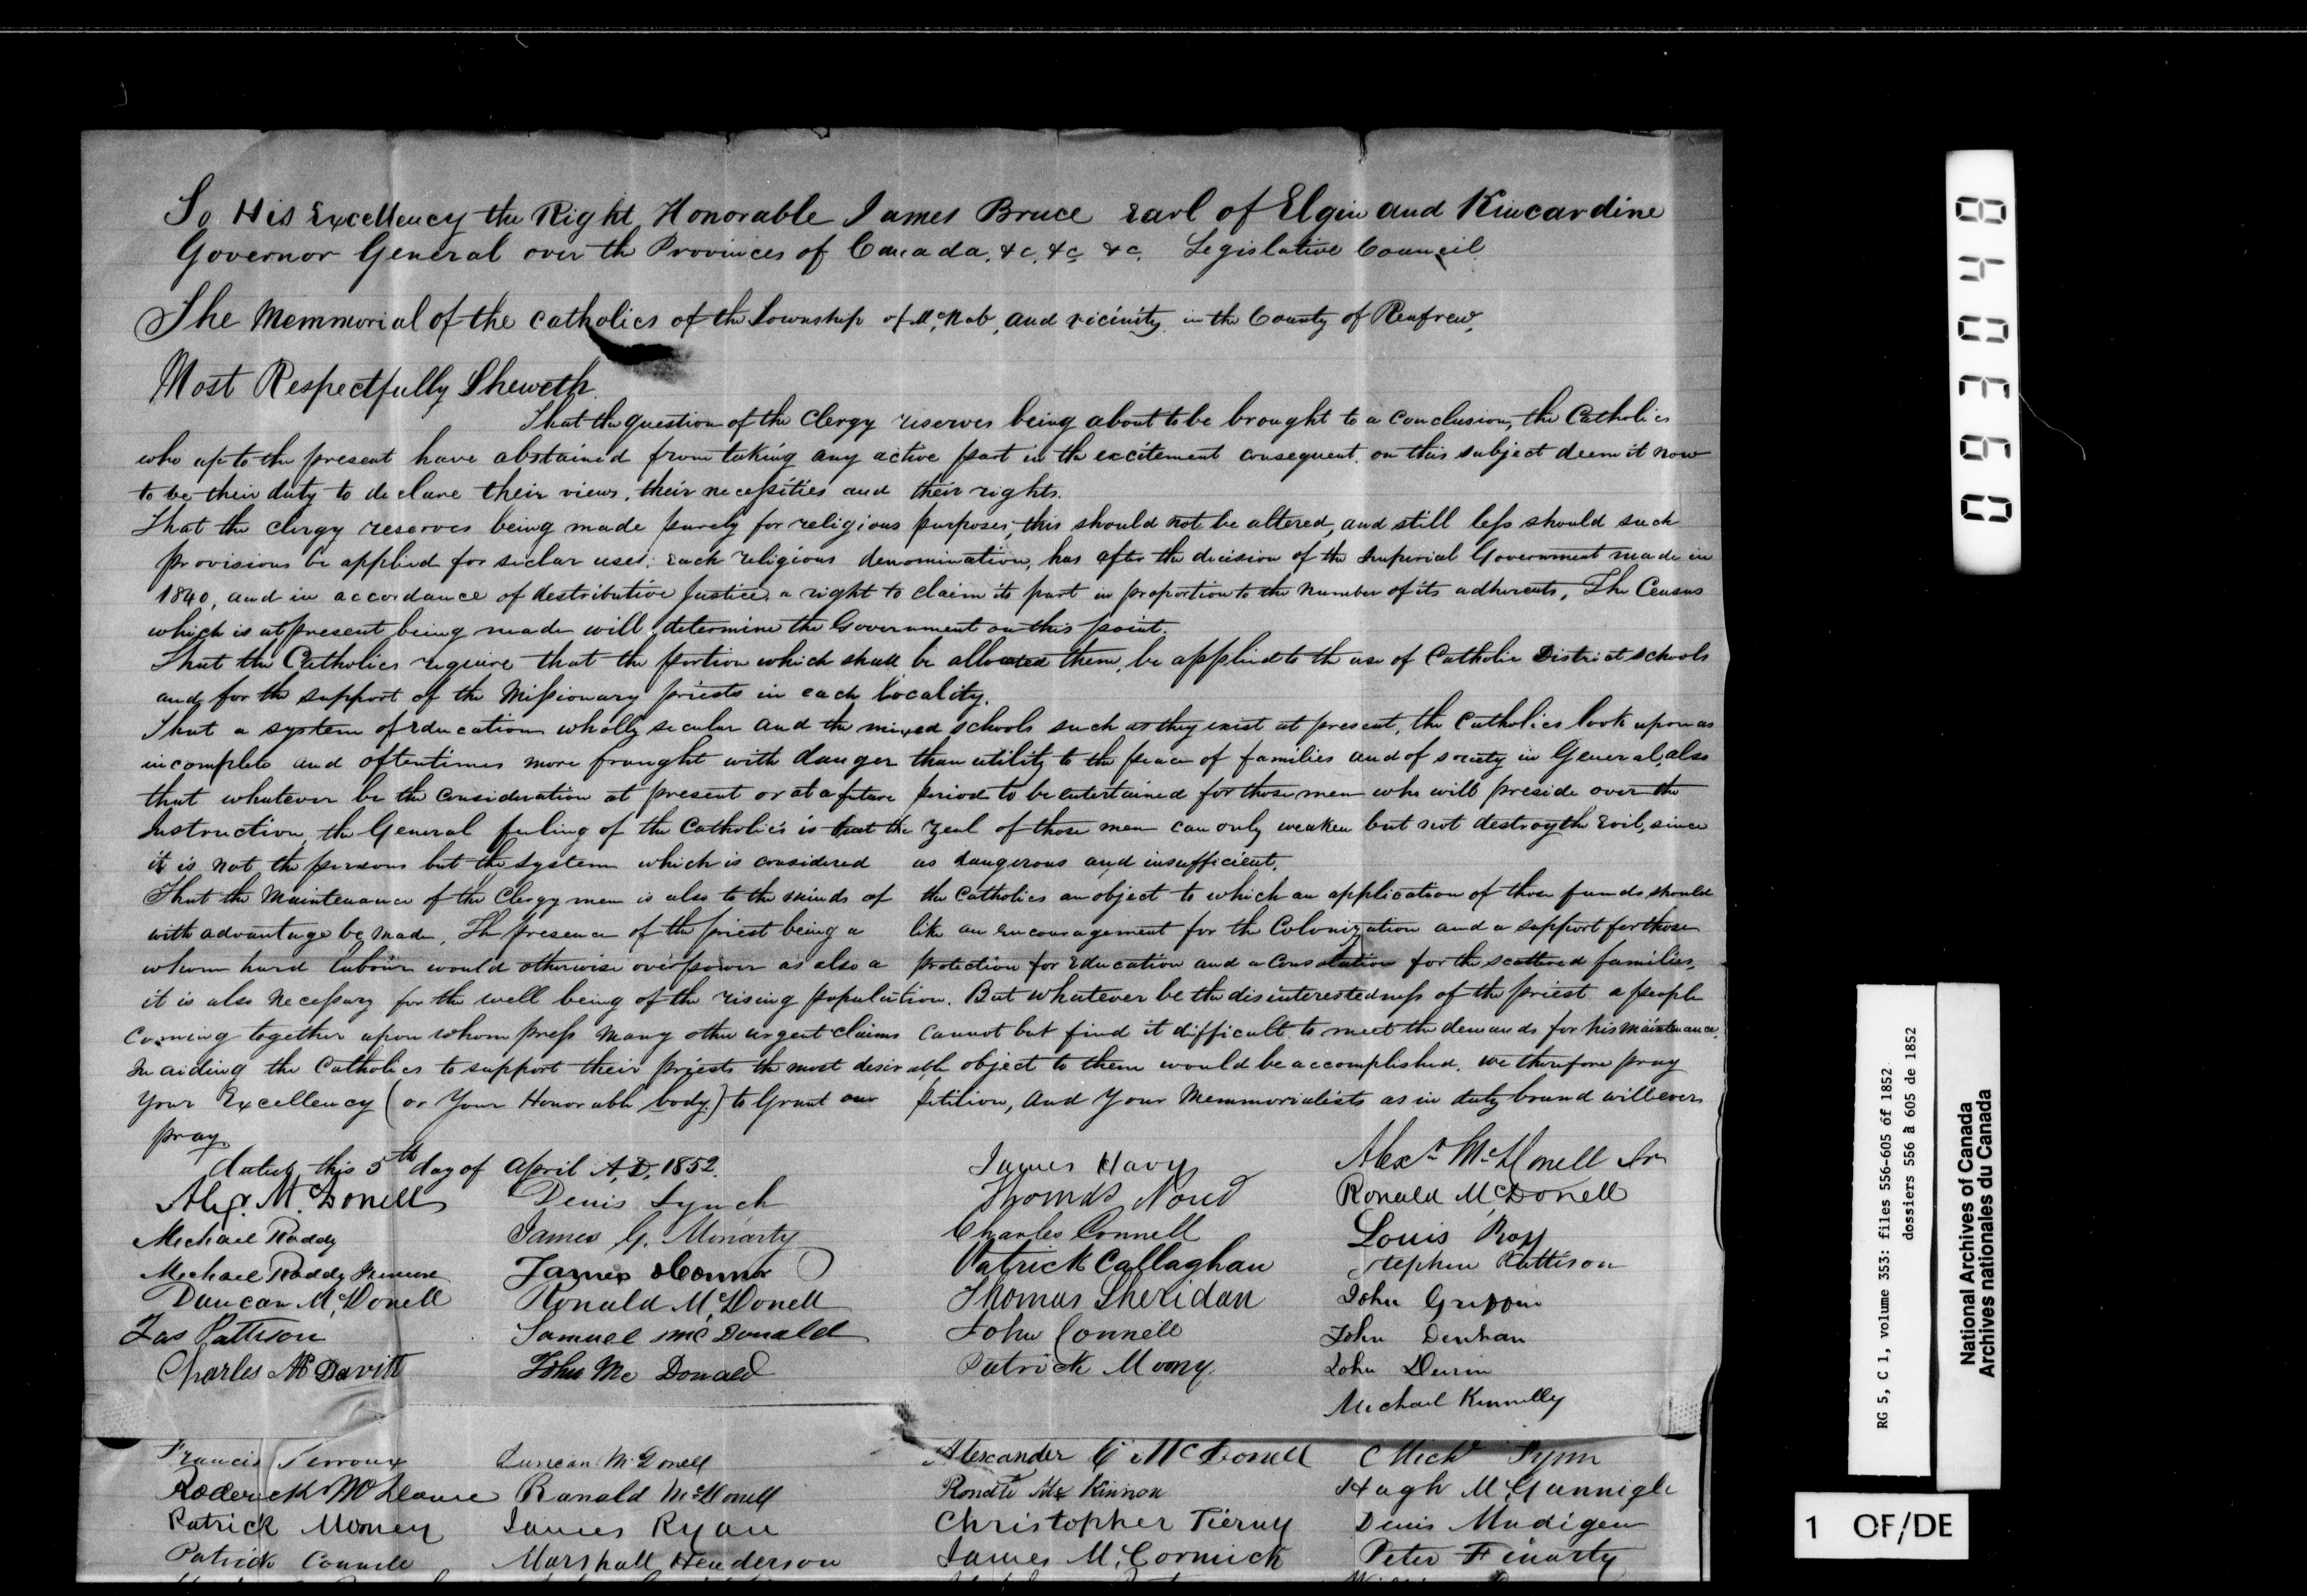 To His Excellency the Right Honorable James Bruce Earl of Elgin and Kincardine
Governor General over the Provinces of Canada, &c, &c &c, Legislative Council
The Memmorial of the Catholics of the Township of McNab, and vicinity in the County of Renfrew,
Most Respectfully Sheweth.
That the question of the Clergy reserves being about to be brought to a conclusion, the Catholics
who up to the present have abstained from taking any active part in the excitement consequent on this subject deem it now
to be their duty to declare their views, their necessities and their rights.
That the clergy reserves being made purely for religious purposes, this should not be altered, and still less should such
provisions be applied for seclar uses; Each religious denomination, has after the decision of the Imperial Government made in
1840, and in accordance of destributive Justice, a right to claim its part in proportion to the number of its adherents, The Census
which is at present being made will determine the Government on this point.
That the Catholics require that the portion which shall be allocated them, be applied to the use of Catholic District schools
and for the support of the Missionary priests in each locality.
That a system of Education wholly secular and the mixed schools such as they exist at present, the Catholics look upon as
incomplete and oftentimes more fraught with danger than utility to the peace of families and of society in General, also
that whatever be the consideration at present or at a future period to be entertained for those men who will preside over the
Instruction, the General feeling of the Catholics is that the zeal of those men can only weaken but not destroy the Evil, since
it is not the persons but the system which is considered as dangerous and insufficient.
That the Maintenance of the Clergymen is also to the minds of the Catholics an object to which an application of those funds should
with advantage be made, The presence of the priest being a like an Encouragement for the Colonization and a support for those
whom hard labour would otherwise overpower as also a protection for Education and a Consolation for the scattered families,
it is also necessary for the well being of the rising population. But whatever be the disinterestedness of the priest a people
coming together upon whom press many other urgent claims cannot but find it difficult to meet the demands for his maintenance.
In aiding the Catholics to support their priests the most desirable object to them would be accomplished. we therefore pray
Your Excellency (or Your Honorable body) to Grant our petition, And Your Memmorialists as in duty bound will ever
pray
dated this 5th day of April A,D, 1852.
James Havy Alexr McDonell Jr
Alex. McDonell Denis Lynch Thomas Noud Ronald McDonell
Michael Roddy James G. Moriarty Charles Connell Louis Roy
Michael Roddy James OConnor Patrick Callaghan Stephen Pattison
Duncan McDonell Ronald McDonell Thomas Sheridan John Griffin
Jas Pattison Samuel McDonald John Connell John Denhan
Charles McDavitt John Mc Donald Patrick Moony. John Devin
Michael Kennelly
Francis Terroux Duncan McDonell Alexander C McDonell Michl Flynn
Roderick Ranald McDonell Kinnon Hugh McGunnigle
Patrick Mooney James Ryan Christopher Tierny Denis Madigen
Patrick Connell Marshall Henderson James McCormick Peter Finarty
093048
RG 5, C 1, volume 353: files 556-605 of 1852
dossiers 556 à 605 de 1852
National Archives of Canada
Archives nationales du Canada
1 OF/DE